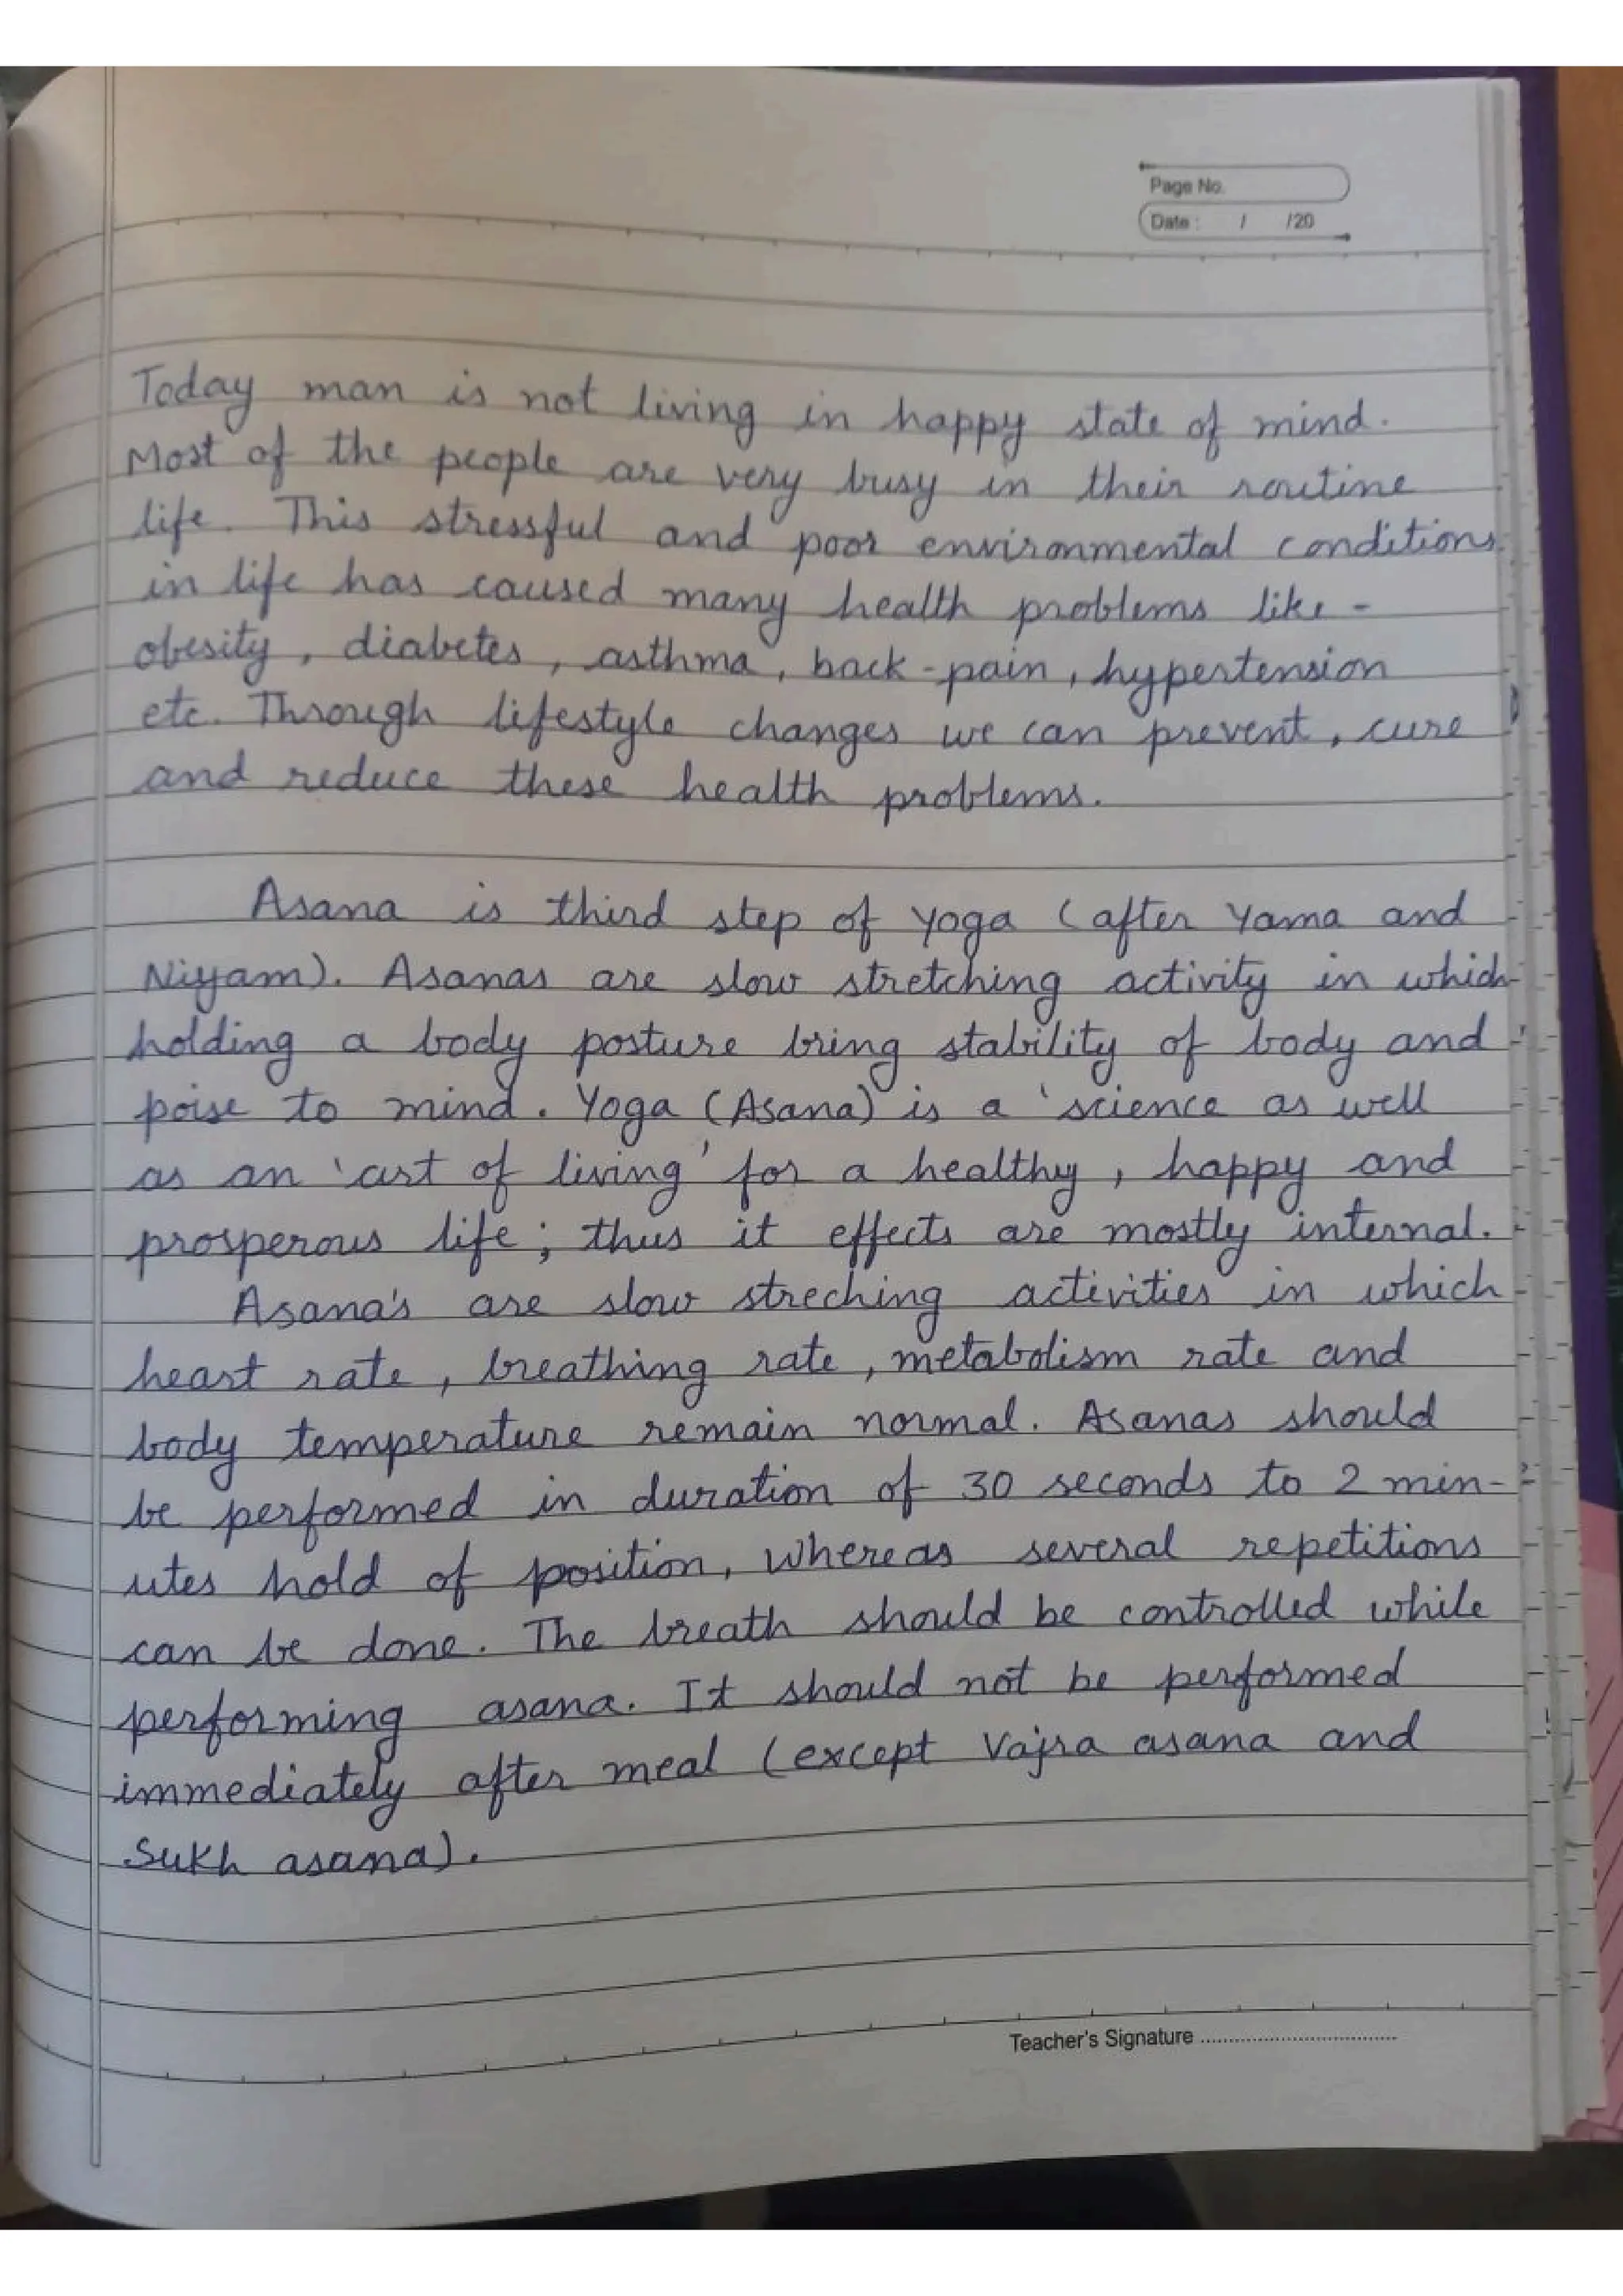 Page No.
Date : / /20
Today man is not living in happy state of mind.
Most of the people are very busy in their routine
life. This stressful and poor environmental conditions
in life has caused many health problems like -
obesity, diabetes, asthma, back-pain, hypertension
etc. Through lifestyle changes we can prevent, cure
and reduce these health problems.
Asana is third step of yoga (after Yama and
Niyam). Asanas are slow stretching activity in which
holding a body posture bring stability of body and
poise to mind. Yoga (Asana) is a 'science as well
as an 'art of living' for a healthy, happy and
prosperous life; thus it effects are mostly internal.
Asana's are slow streching activities in which
heart rate, breathing rate, metabolism rate and
body temperature remain normal. Asanas should
be performed in duration of 30 seconds to 2 min-
utes hold of position, whereas several repetitions
can be done. The breath should be controlled while
performing asana. It should not be performed
immediately after meal (except Vajra asana and
Sukh asana).
Teacher's Signature ....................................